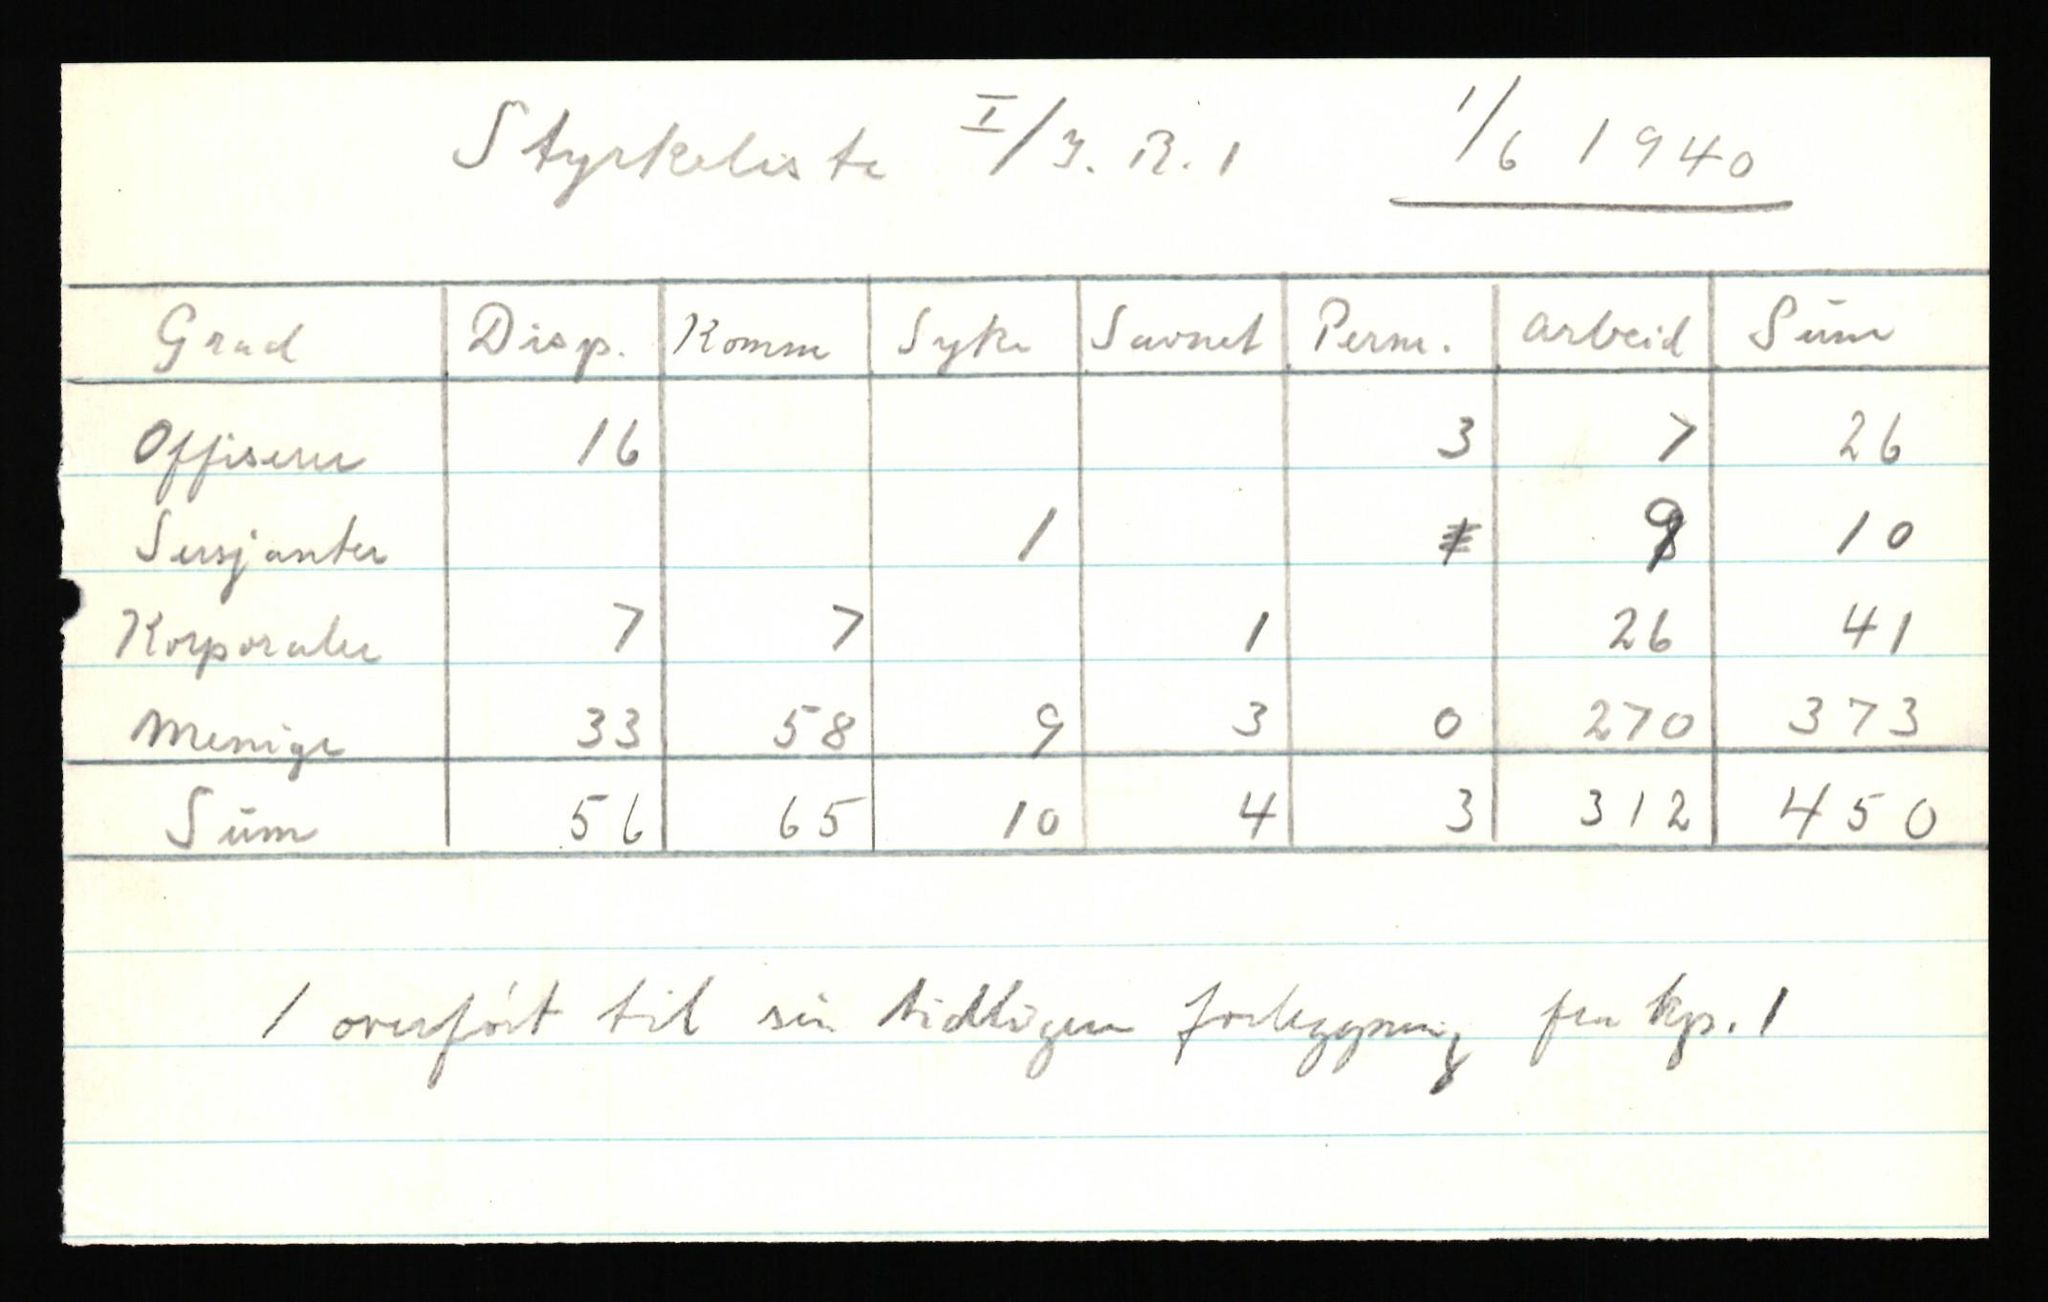 Styrkeliste I/J.R.1 1/6 1940
Grad Disp. Komm Syke Savnet Perm. Arbeid Sum
Offiserer 16 3 7 26
Sersjanter 1 9 10
Korporaler 7 7 1 26 41
Menige 33 58 9 3 0 270 373
Sum 56 65 10 4 3 312 450
1 overført til sin tidligere forlegning fra kp. 1